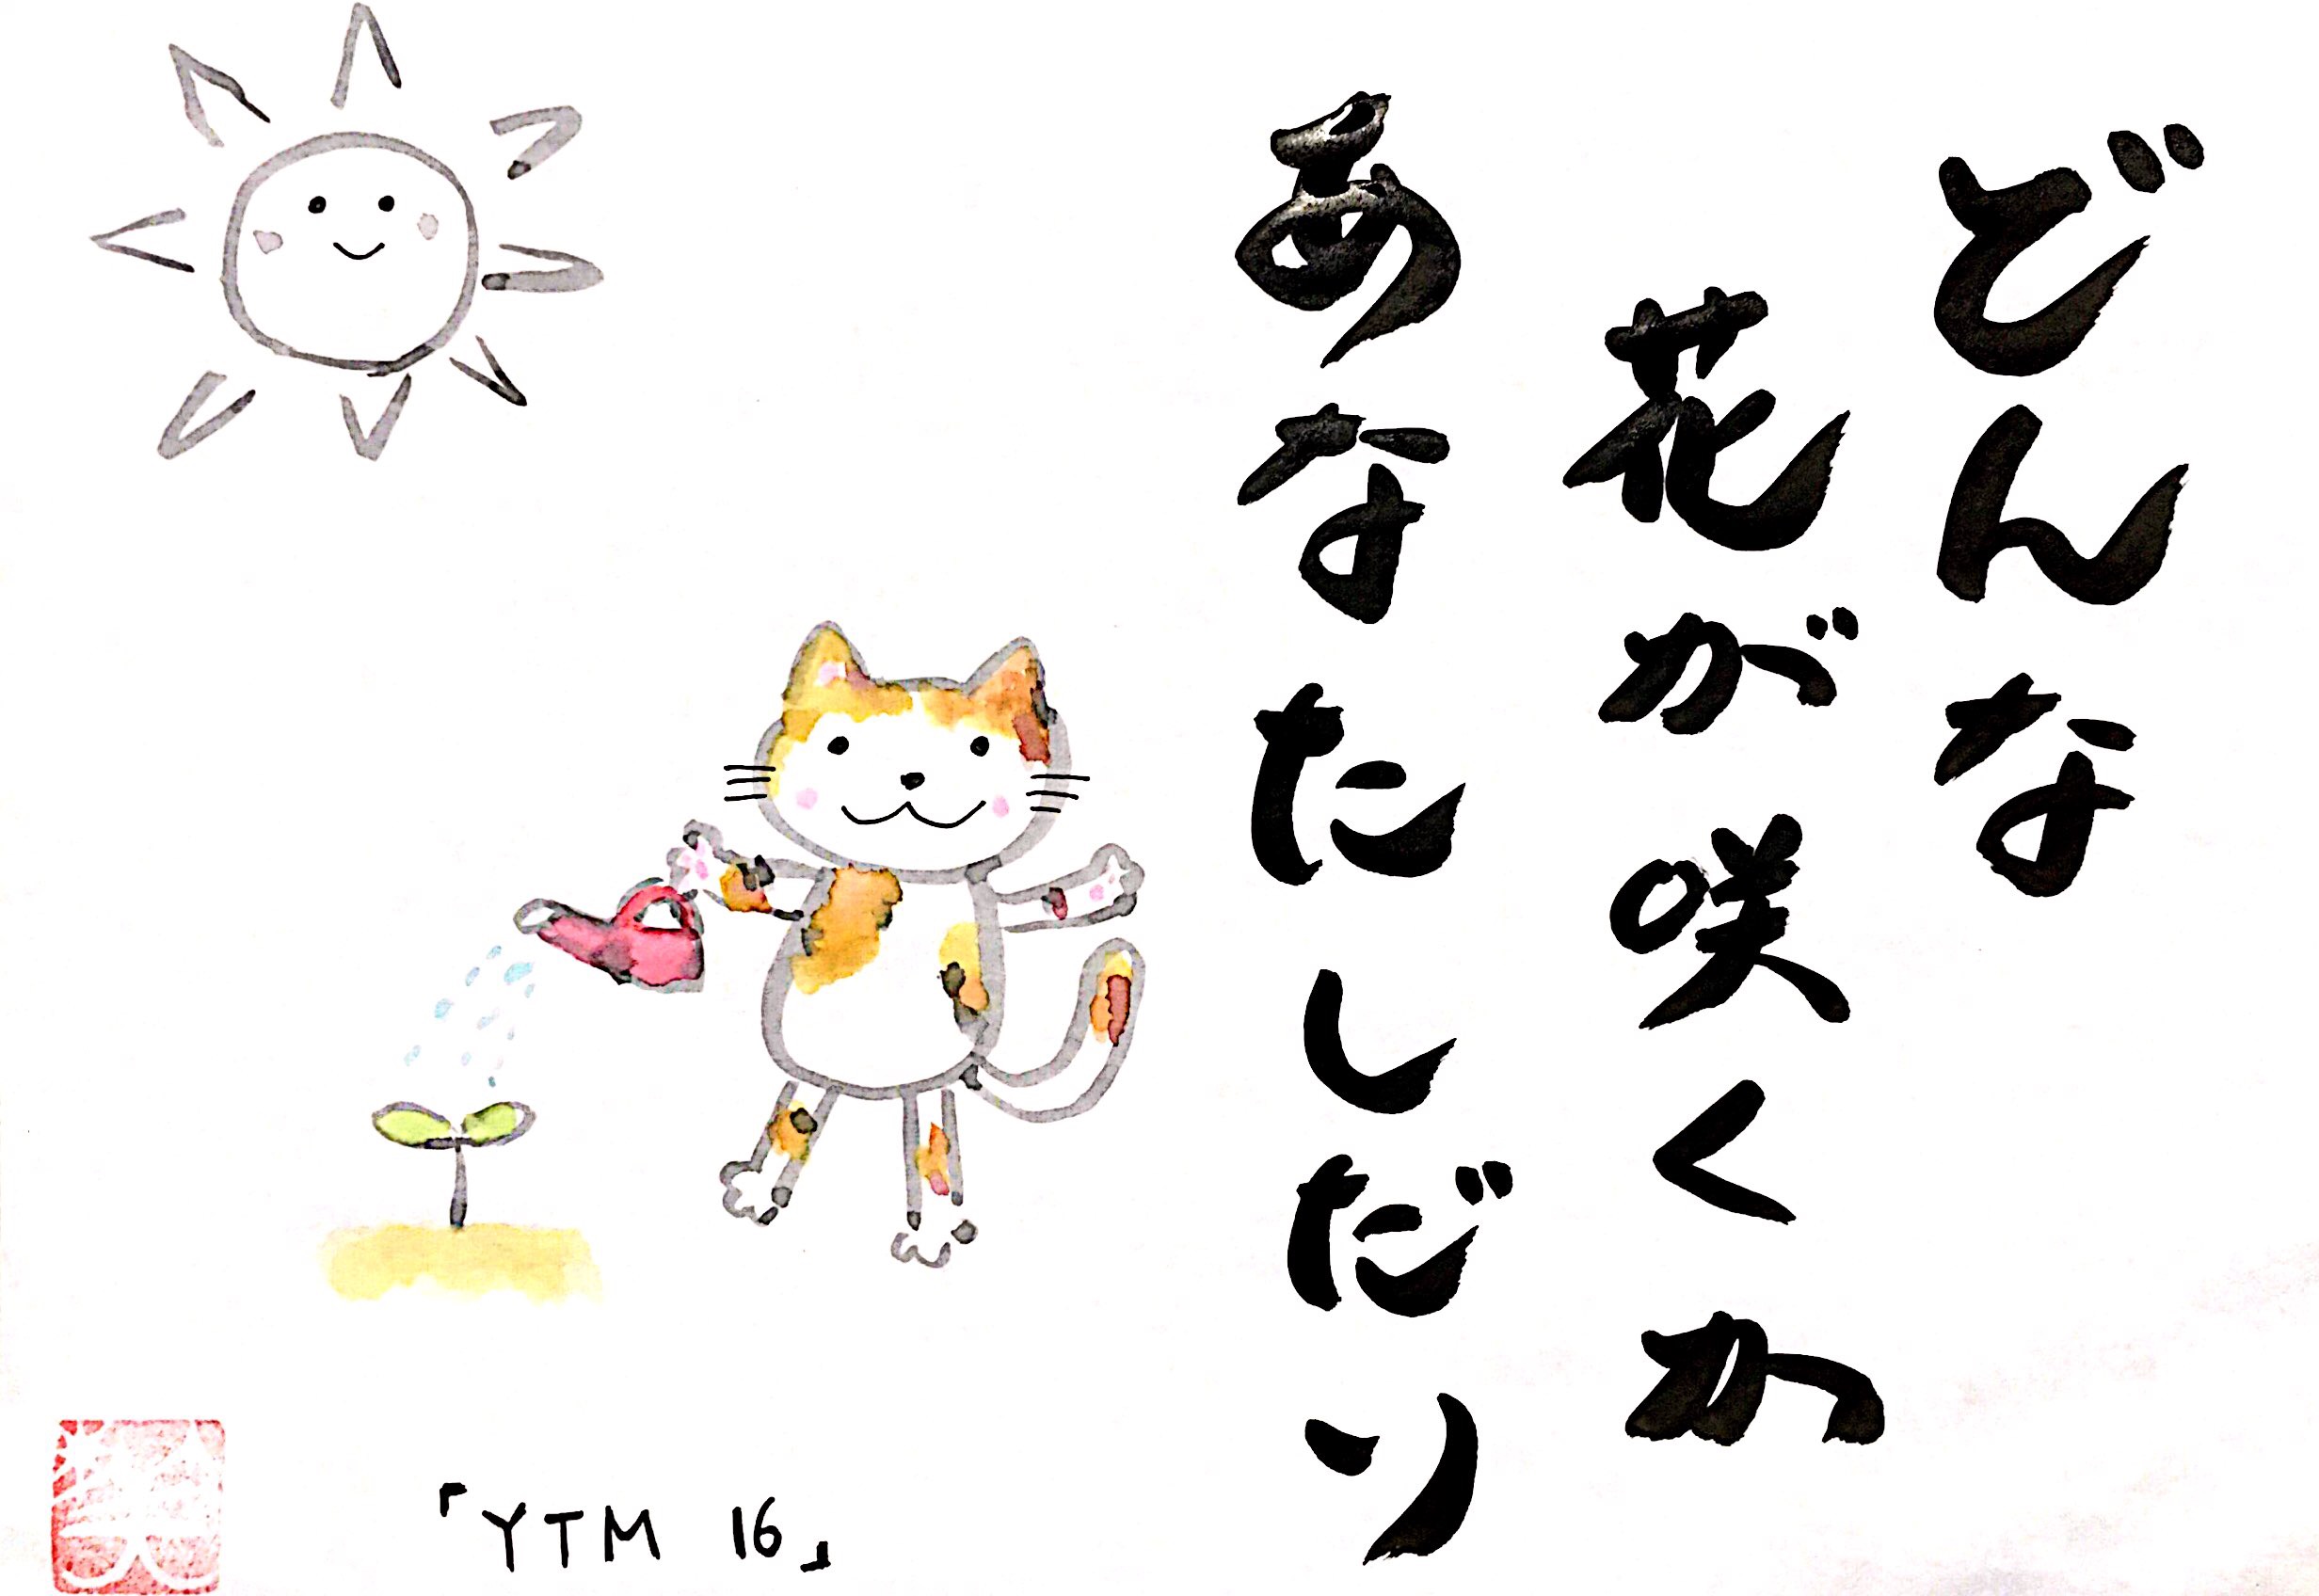 どんな
花が咲くか
あなたしだい
「YTM 16」